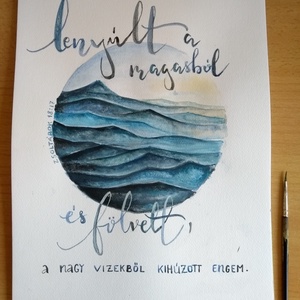 lenyúlt a
magasból
ZSOLTÁROK 18:17
és
fölvett,
a nagy vizekből kihúzott engem.